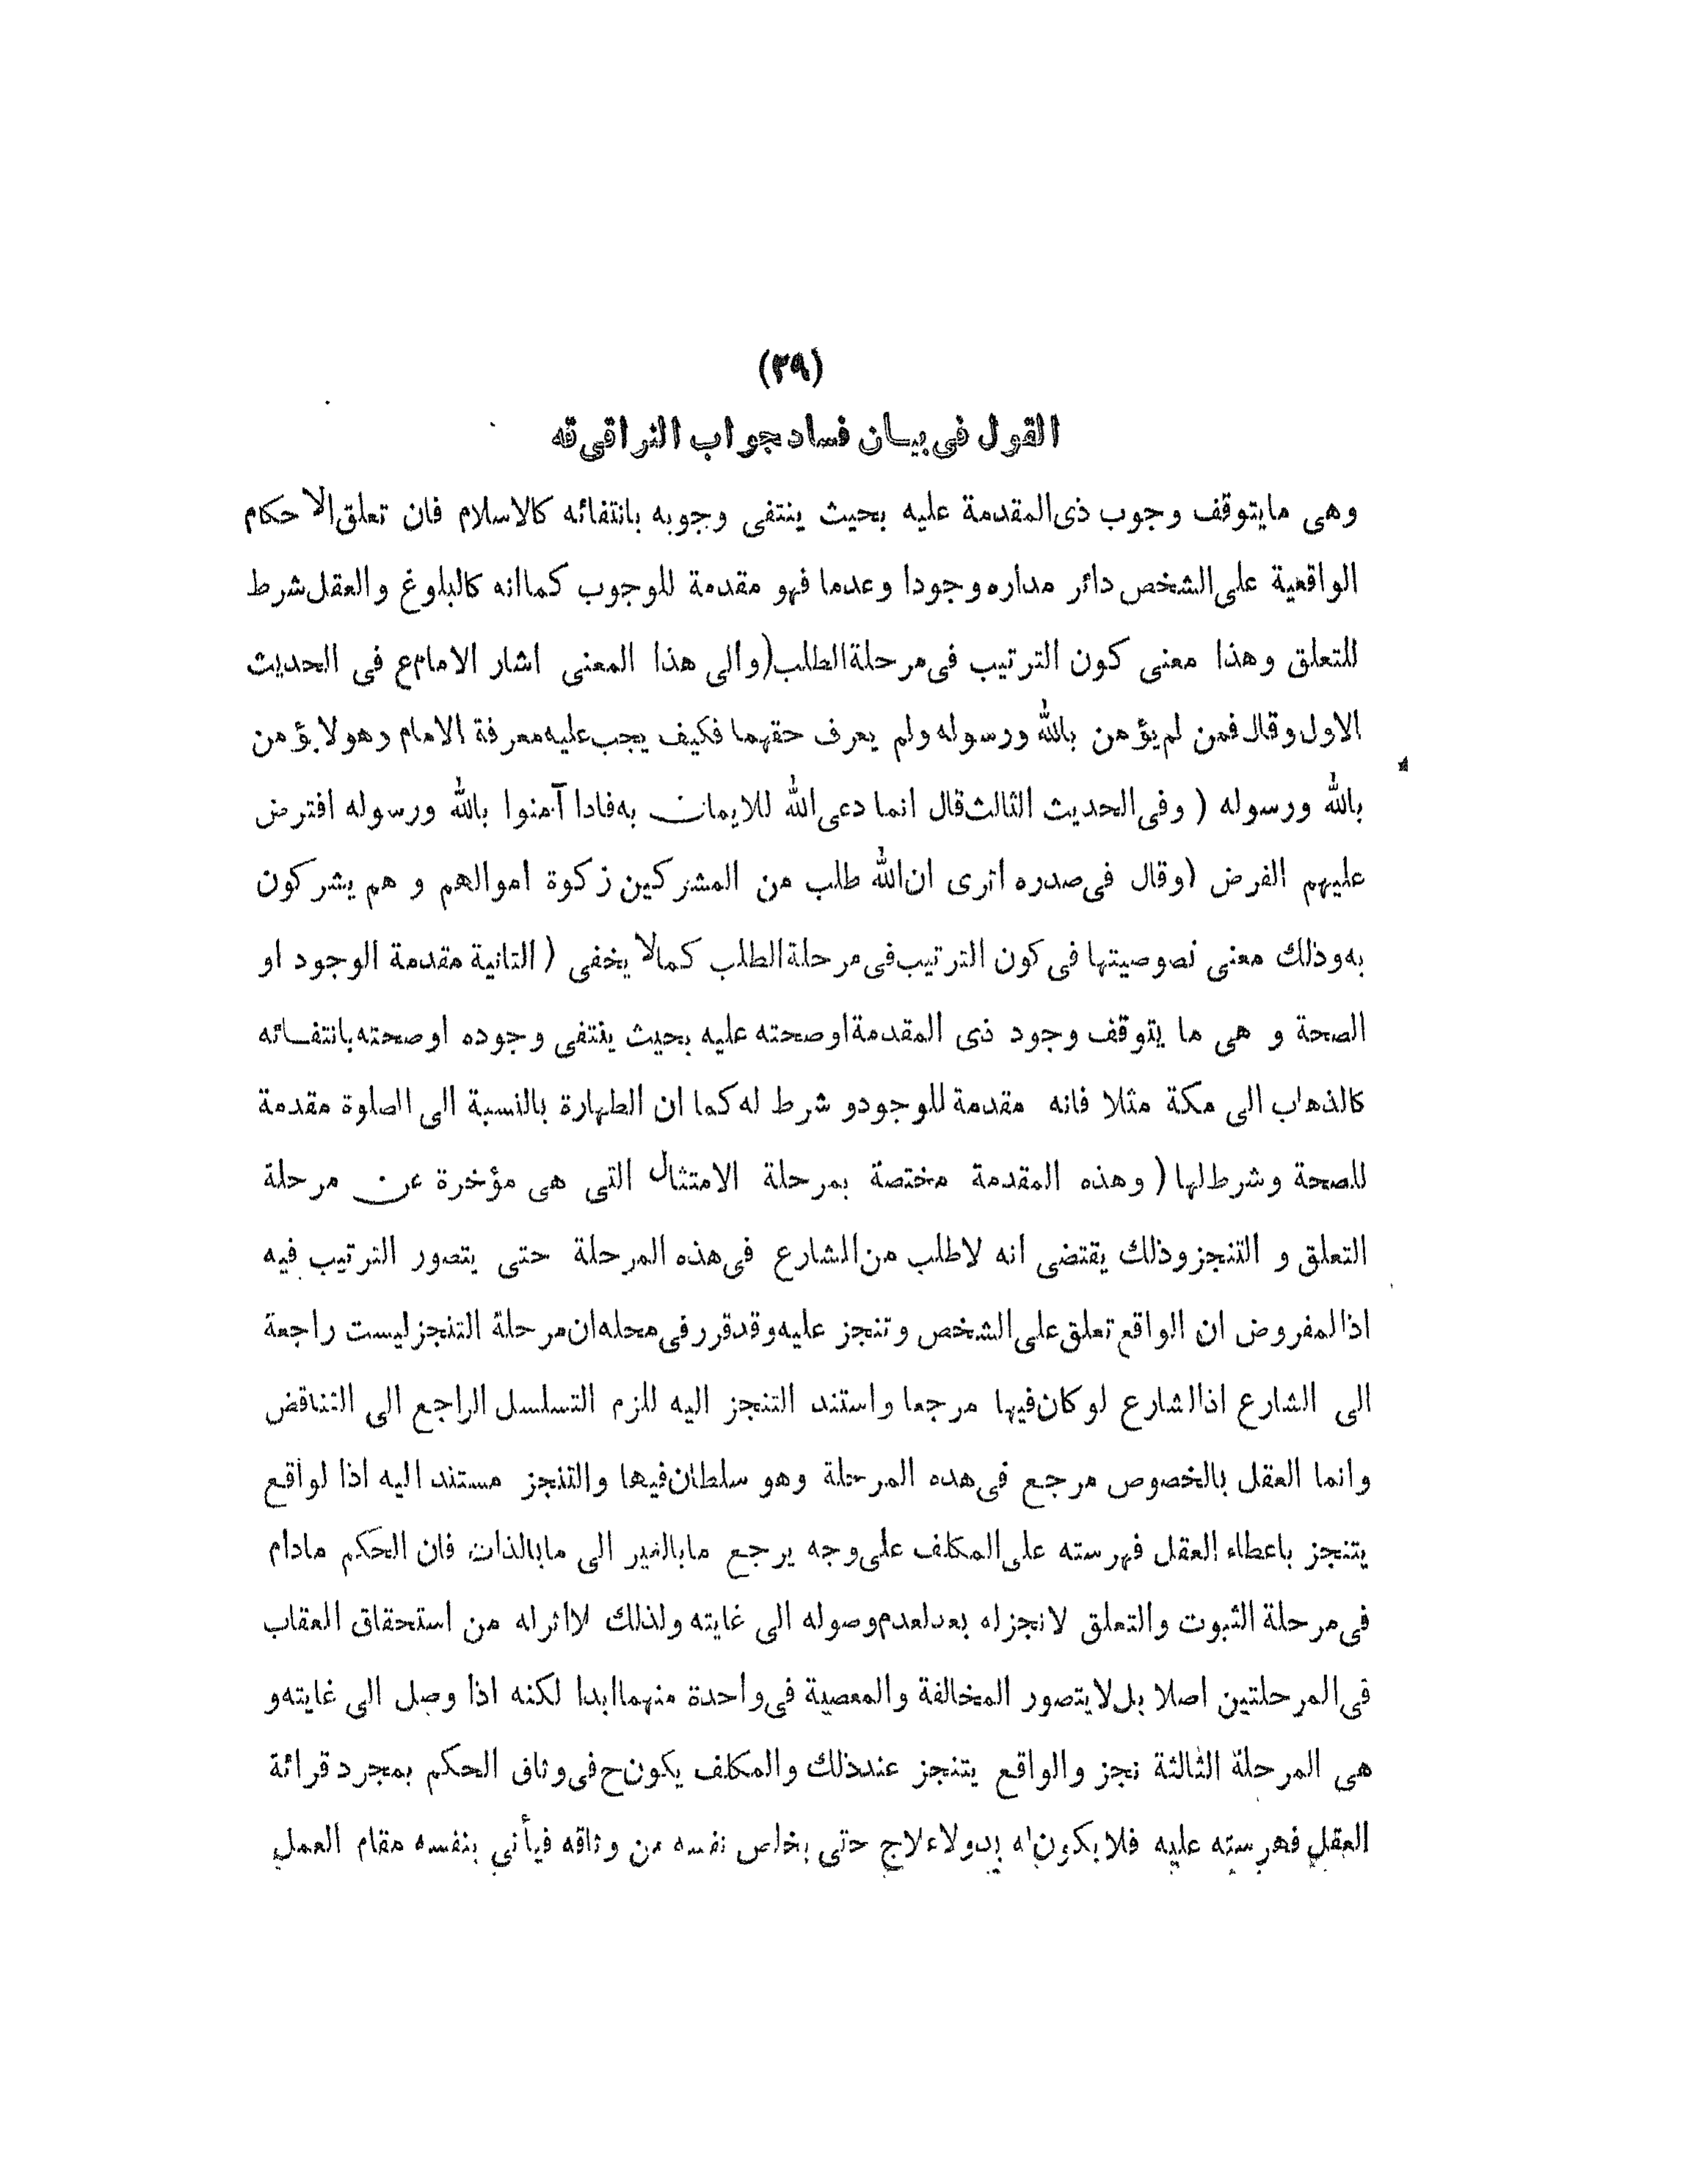 (٣٩)
القول فى بيان فساد جواب النراقى قه
وهى مايتوقف وجوب ذى المقدمة عليه بحيث ينتفى وجوبه بانتفائه كالاسلام فان تعلق الاحكام
الواقعية على الشخص دائر مداره وجودا وعدما فهو مقدمة للوجوب كما انه كالبلوغ والعقل شرط
للتعلق وهذا معنى كون الترتيب فى مرحلة الطلب(والى هذا المعنى اشار الامام ع فى الحديث
الاول وقال فمن لم يؤمن بالله ورسوله ولم يعرف حقهما فكيف يجب عليه معرفة الامام وهو لا يؤمن
بالله ورسوله ( وفى الحديث الثالث قال انما دعى الله للايمان به فاذا آمنوا بالله ورسوله افترض
عليهم الفرض (وقال فى صدره اترى ان الله طلب من المشركين زكوة اموالهم و هم يشركون
به وذلك معنى نصوصيتها فى كون الترتيب فى مرحلة الطلب كما لا يخفى ( الثانية مقدمة الوجود او
الصحة و هى ما يتوقف وجود ذى المقدمة او صحته عليه بحيث ينتفى وجوده او صحته بانتفائه
كالذهاب الى مكة مثلا فانه مقدمة للوجود و شرط له كما ان الطهارة بالنسبة الى الصلوة مقدمة
للصحة وشرط لها ( وهذه المقدمة مختصة بمرحلة الامتثال التى هى مؤخرة عن مرحلة
التعلق و التنجز وذلك يقتضى انه لا طلب من الشارع فى هذه المرحلة حتى يتصور الترتيب فيه
اذا لمفروض ان الواقع تعلق على الشخص وتنجز عليه وقد قرر فى محله ان مرحلة التنجز ليست راجعة
الى الشارع اذا لشارع لو كان فيها مرجعا واستند التنجز اليه للزم التسلسل الراجع الى التناقض
وانما العقل بالخصوص مرجع فى هذه المرحلة وهو سلطان فيها والتنجز مستند اليه اذا لواقع
يتنجز باعطاء العقل فهرسته على المكلف على وجه يرجع ما بالغير الى ما بالذات فان الحكم مادام
فى مرحلة الثبوت والتعلق لا نجز له بعد لعدم وصوله الى غايته ولذلك لا اثر له من استحقاق العقاب
فى المرحلتين اصلا بل لا يتصور المخالفة والمعصية فى واحدة منهما ابدا لكنه اذا وصل الى غايته و
هى المرحلة الثالثة نجز والواقع يتنجز عند ذلك والمكلف يكون ح فى وثاق الحكم بمجرد قرائة
العقل فهرسته عليه فلا يكون له بد ولا علاج حتى يخلص نفسه من وثاقه فيأتى بنفسه مقام العمل